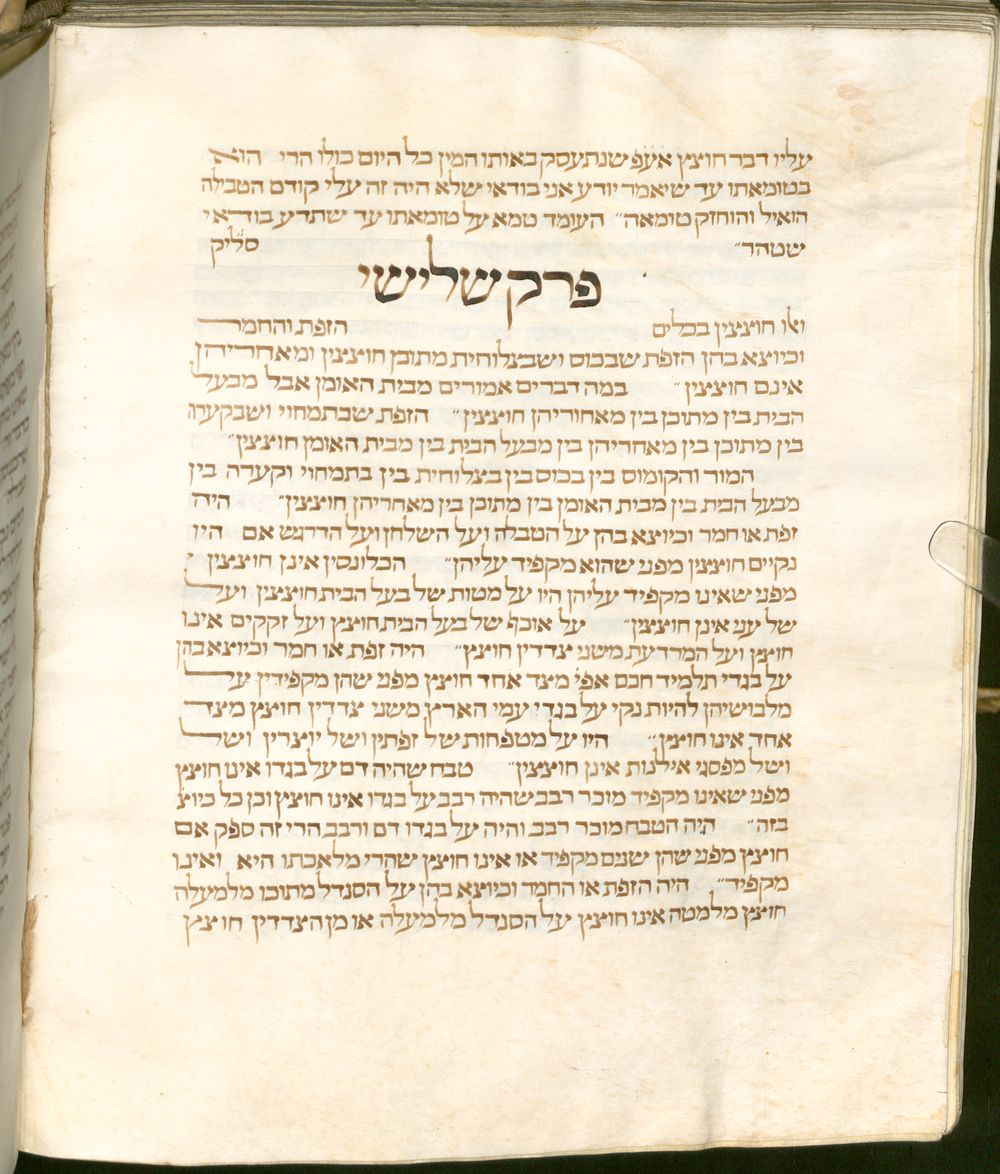 עליו דבר חוצץ אעפ שנתעסק באותו המין כל היום כולו הרי הוא
בטומאתו עד שיאמר יודע אני בודאי שלא היה זה עלי קודם הטבילה
הואיל והוחזק טומאה״ העומד טמא על טומאתו עד שתדע בודאי
שטהר״ סליק
פרק שלישי
ואו חוצצין בכלים הזפת והחמר
וכיוצא בהן הזפת שבכוס ושבצלוחית מתוכן חוצצין ומאחריהן
אינם חוצצין״ במה דברים אמורים מבית האומן אבל מבעל
הבית בין מתוכן בין מאחוריהן חוצצין״ הזפת שבתמחוי ושבקערה
בין מתוכן בין מאחריהן בין מבעל הבית בין מבית האומן חוצצין״
המור והקומוס בין בכוס בין בצלוחית בין בתמחוי וקערה בין
מבעל הבית בין מבית האומן בין מתוכן בין מאחריהן חוצצין״ היה
זפת או חמר וכיוצא בהן על הטבלה ועל השלחן ועל הדרגש אם היו
נקיים חוצצין מפני שהוא מקפיד עליהן״ הבלונסין אינן חוצצין
מפני שאינו מקפיד עליהן היו על מטות של בעל הבית חוצצין ועל
של עני אינן חוצצין״ על אוכף של בעל הבית חוצץ ועל זקקים אינו
חוצץ ועל המרדעת משני צדדין חוצץ״ היה זפת או חמר וכיוצא בהן
על בגדי תלמיד חכם אפי׳ מצד אחד חוצץ מפני שהן מקפידין על
מלבושיהן להיות נקי על בגדי עמי הארץ משני צדדין חוצץ מצד
אחד אינו חוצץ״ היו על מטפחות של זפתין ושל יוצרין ושל
ושל מפסגי אילנות אינן חוצצין״ טבח שהיה דם על בגדו אינו חוצץ
מפני שאינו מקפיד מוכר רבב שהיה רבב על בגדו אינו חוצץ וכן כל כיוצ׳
בזה״ היה הטבח מוכר רבב והיה על בגדו דם ורבב הרי זה ספק אם
חוצץ מפני שהן שנים מקפיד או אינו חוצץ שהרי מלאכתו היא ואינו
מקפיד״ היה הזפת או החמר וכיוצא בהן על הסנדל מתוכו מלמעלה
חוצץ מלמטה אינו חוצץ על הסנדל מלמעלה או מן הצדדין חוצץ